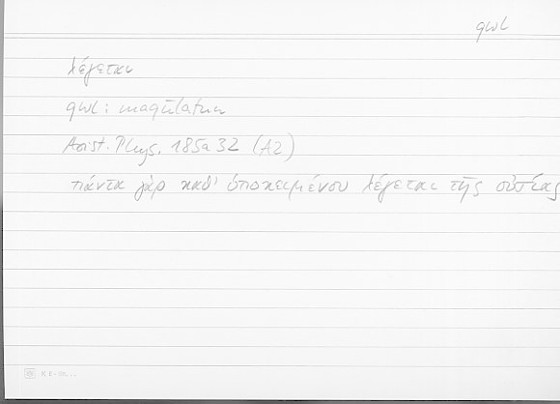 qwl
λέγεται
qwl: maqūlatun
Arist. Phys. 185a32 (A2)
πάντα γὰρ καθ' ὑποκειμένου λέγεται τῆς οὐσίας